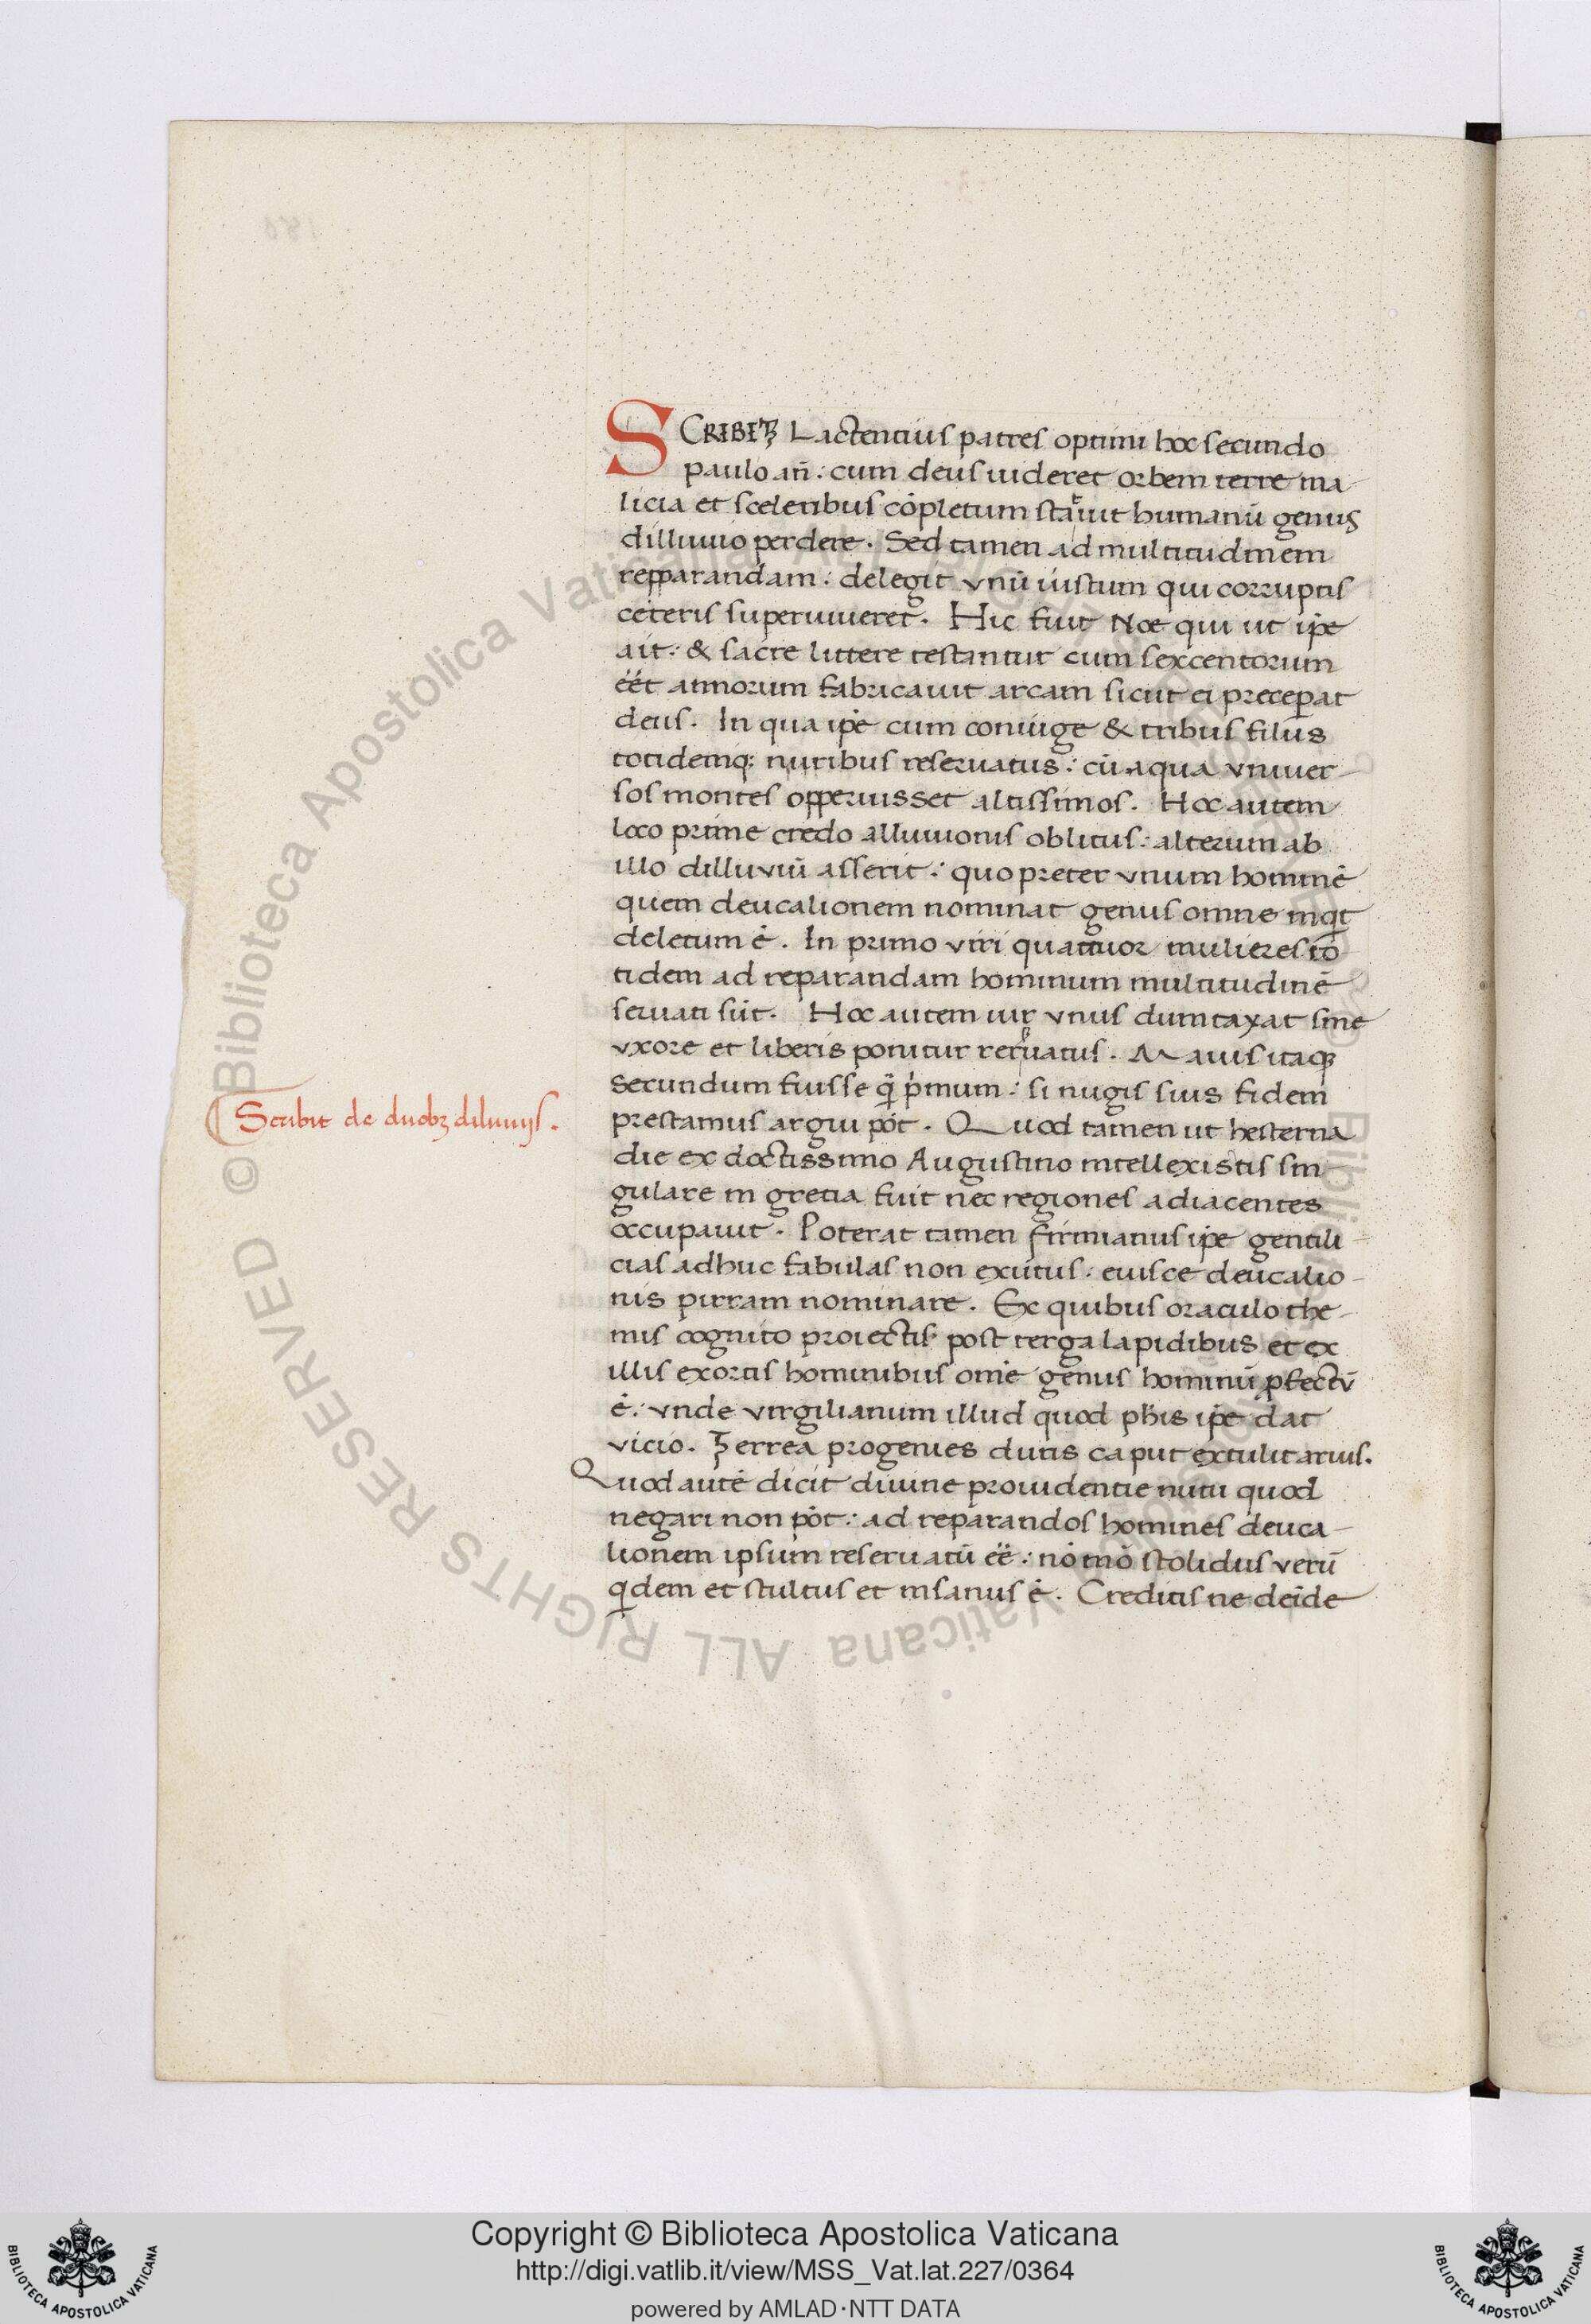 SCRIBIT Lactentius patres optimi hoc secundo
paulo añ: cum deus uideret orbem terre ma
licia et sceleribus cōpletum statuit humanū genus
dilluuio perdere. Sed tamen ad multitudinem
repparandam: delegit vnū iustum qui corruptis
ceteris superuiueret. Hic fuit Noe qui ut ip̄e
ait: & sacre littere testantur cum sexcentorum
eēt annorum fabricauit arcam sicut ei preceꝑat
deus. In qua ip̄e cum coniuge & tribus filiis
totidemq; nuribus reseruatus: cū aqua vniuer
sos montes opperuisset altissimos. Hoc autem
loco prime credo alluuionis oblitus: alterum ab
illo dilluviū asserit: quo preter vnum hominē
quem deucalionem nominat genus omne inqt
deletum ē. In primo viri quattuor mulieres to
tidem ad reparandam hominum multitudinē
seruati sūt. Hoc autem uir vnus dumtaxat sine
vxore et liberis ponitur reseruatus. Mauis itaq
secundum fuisse q̄ pmum: si nugis suis fidem
prestamus argui pōt. Quod tamen ut hesterna
die ex doctissimo Augustino intellexistis sin
gulare in gretia fuit nec regiones adiacentes
occupauit. Poterat tamen firmianus ip̄e gentili
cias adhuc fabulas non exutus: eiusce deucalio
nis pirram nominare. Ex quibus oraculo the
mis cognito proiectis post terga lapidibus et ex
illis exortis hominibus om̄e genus hominū ꝓfectū
ē: vnde virgilianum illud quod phis ip̄e dat
vicio. Ferrea progenies duris caput extulit aruis.
Quod autē dicit diuine prouidentie nutu quod
negari non pōt: ad reparandos homines deuca
lionem ipsum reseruatū eē: nō mō stolidus verū
qdem et stultus et insanus ē. Creditis ne deīde
Scribit de duobꝫ diluuijs.
© Biblioteca Apostolica Vaticana ALL RIGHTS RESERVED
Copyright © Biblioteca Apostolica Vaticana
http://digi.vatlib.it/view/MSS_Vat.lat.227/0364
powered by AMLAD·NTT DATA
BIBLIOTECA APOSTOLICA VATICANA
BIBLIOTECA APOSTOLICA VATICANA